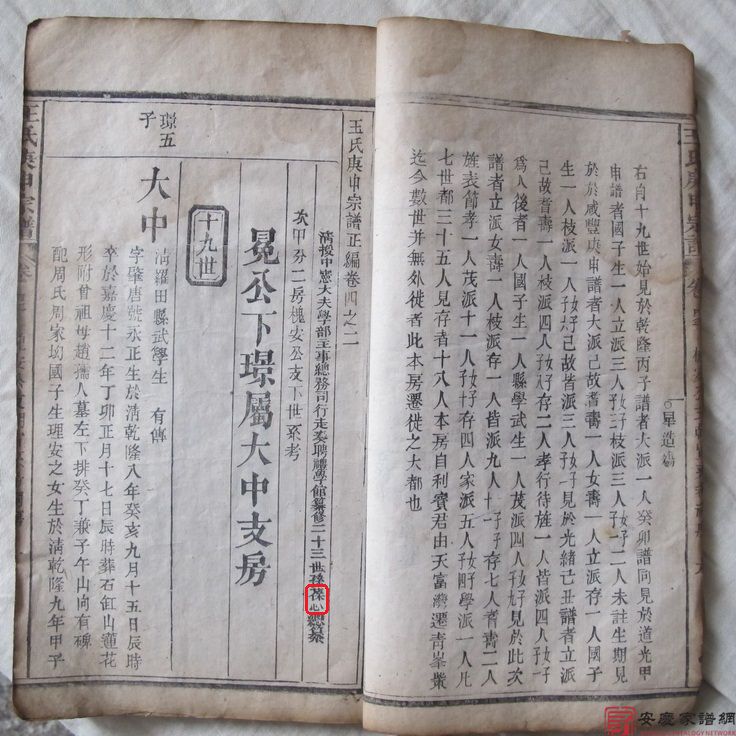 右自十九世始見於乾隆丙子譜者大派一人癸卯譜同見於道光甲
申譜者國子生一人立派三人
枝派三人
二人未註生期見
於於咸豐庚申譜者大派己故耆壽一人女壽一人立派存一人國子
生一人枝派一人
己故皆派三人
見於光緒己丑譜者立派
己故耆壽一人枝派四人
存二人孝行待旌一人皆派四人
為人後者一人國子生一人縣學武生一人茂派四人
見於此次
譜者立派女壽一人枝派存一人皆派九人十一
存七人耆壽二人
旌表節孝一人茂派十一人
存四人家派五人
學派一人凡
七世都三十五人見存者十八人本房自利賓君由天富灣遷青峯
迄今數世并無外徙者此本房遷徙之大都也
星造
王氏庚申宗譜正編卷四之二
清授中憲大夫學部主事總務司行走委聘禮學館纂修二十三世孫葆心總纂
次甲分二房槐安公支下世系考
冕公下璟屬大中支房
十九世
璟五子
大中
清羅田縣武學生 有傳
字肇唐號永正生於清乾隆八年癸亥九月十五日辰時
卒於嘉慶十二年丁卯正月十七日辰時葬石缸山蓮花
形附曾祖母趙孺人墓左下排癸丁兼子午山向有碑
配周氏周家坳國子生理安之女生於清乾隆九年甲子
王氏庚申宗譜
安慶家譜網